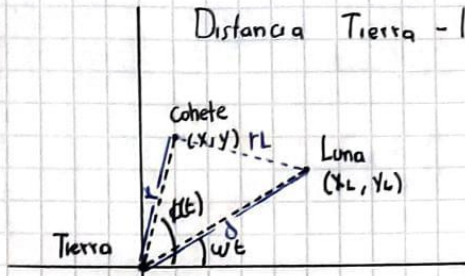 Distancia Tierra -
Cohete
(x,y) rL
Luna
(xL, yL)
r
ϕ(t)
d
Tierra
wt